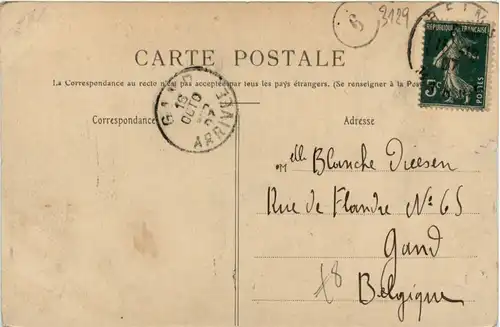 3129
6
REIMS
REPUBLIQUE FRANÇAISE
5c
POSTES
CARTE POSTALE
La Correspondance au recto n'est pas acceptée par tous les pays étrangers. (Se renseigner à la Poste
GAND
18
OCTO
07
ARRIVEE
Correspondance
Adresse
Melle Blanche Dressen
Rue de Flandre No 65
Gand
Belgique